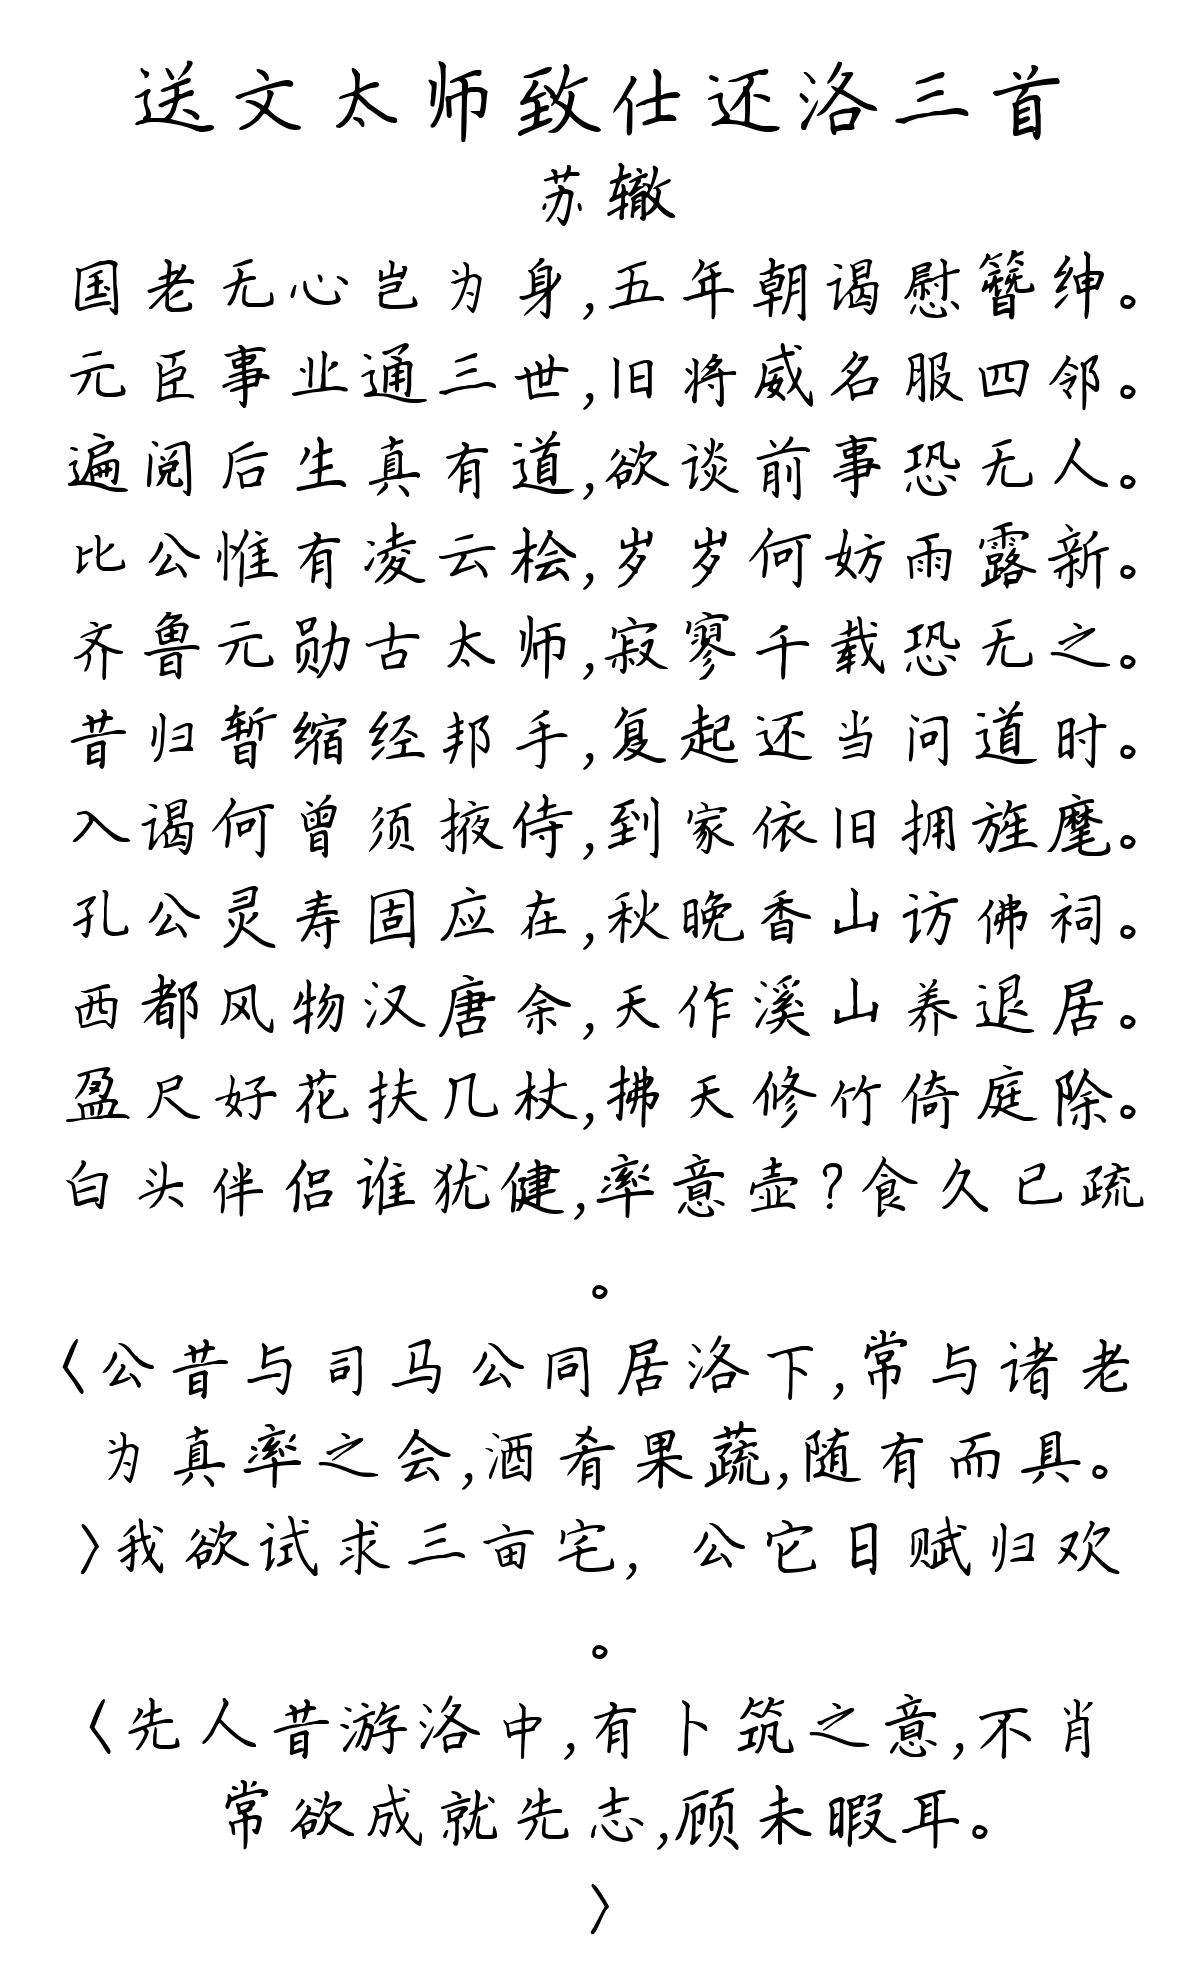 送文太师致仕还洛三首
苏辙
国老无心岂为身,五年朝谒慰簪绅。
元臣事业通三世,旧将威名服四邻。
遍阅后生真有道,欲谈前事恐无人。
比公惟有凌云桧,岁岁何妨雨露新。
齐鲁元勋古太师,寂寥千载恐无之。
昔归暂缩经邦手,复起还当问道时。
入谒何曾须掖侍,到家依旧拥旌麾。
孔公灵寿固应在,秋晚香山访佛祠。
西都风物汉唐余,天作溪山养退居。
盈尺好花扶几杖,拂天修竹倚庭除。
白头伴侣谁犹健,率意壶?食久已疏
。
〈公昔与司马公同居洛下,常与诸老
为真率之会,酒肴果蔬,随有而具。
〉我欲试求三亩宅, 公它日赋归欢
。
〈先人昔游洛中,有卜筑之意,不肖
常欲成就先志,顾未暇耳。
〉